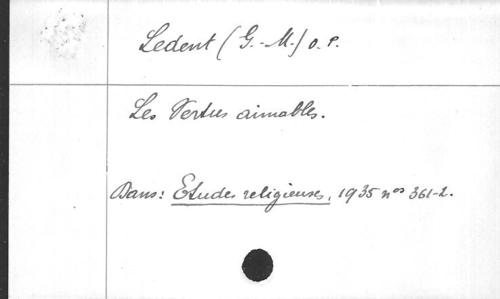 Ledent (G.-M.) O.P.
Les Vertus aimables.
Dans: Etudes religieuses, 1935 nos 361-2.